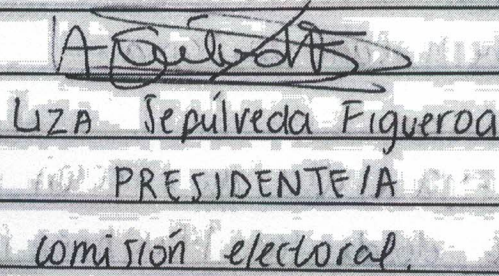 LIZA Sepúlveda Figueroa
PRESIDENTE/A
comisión electoral.